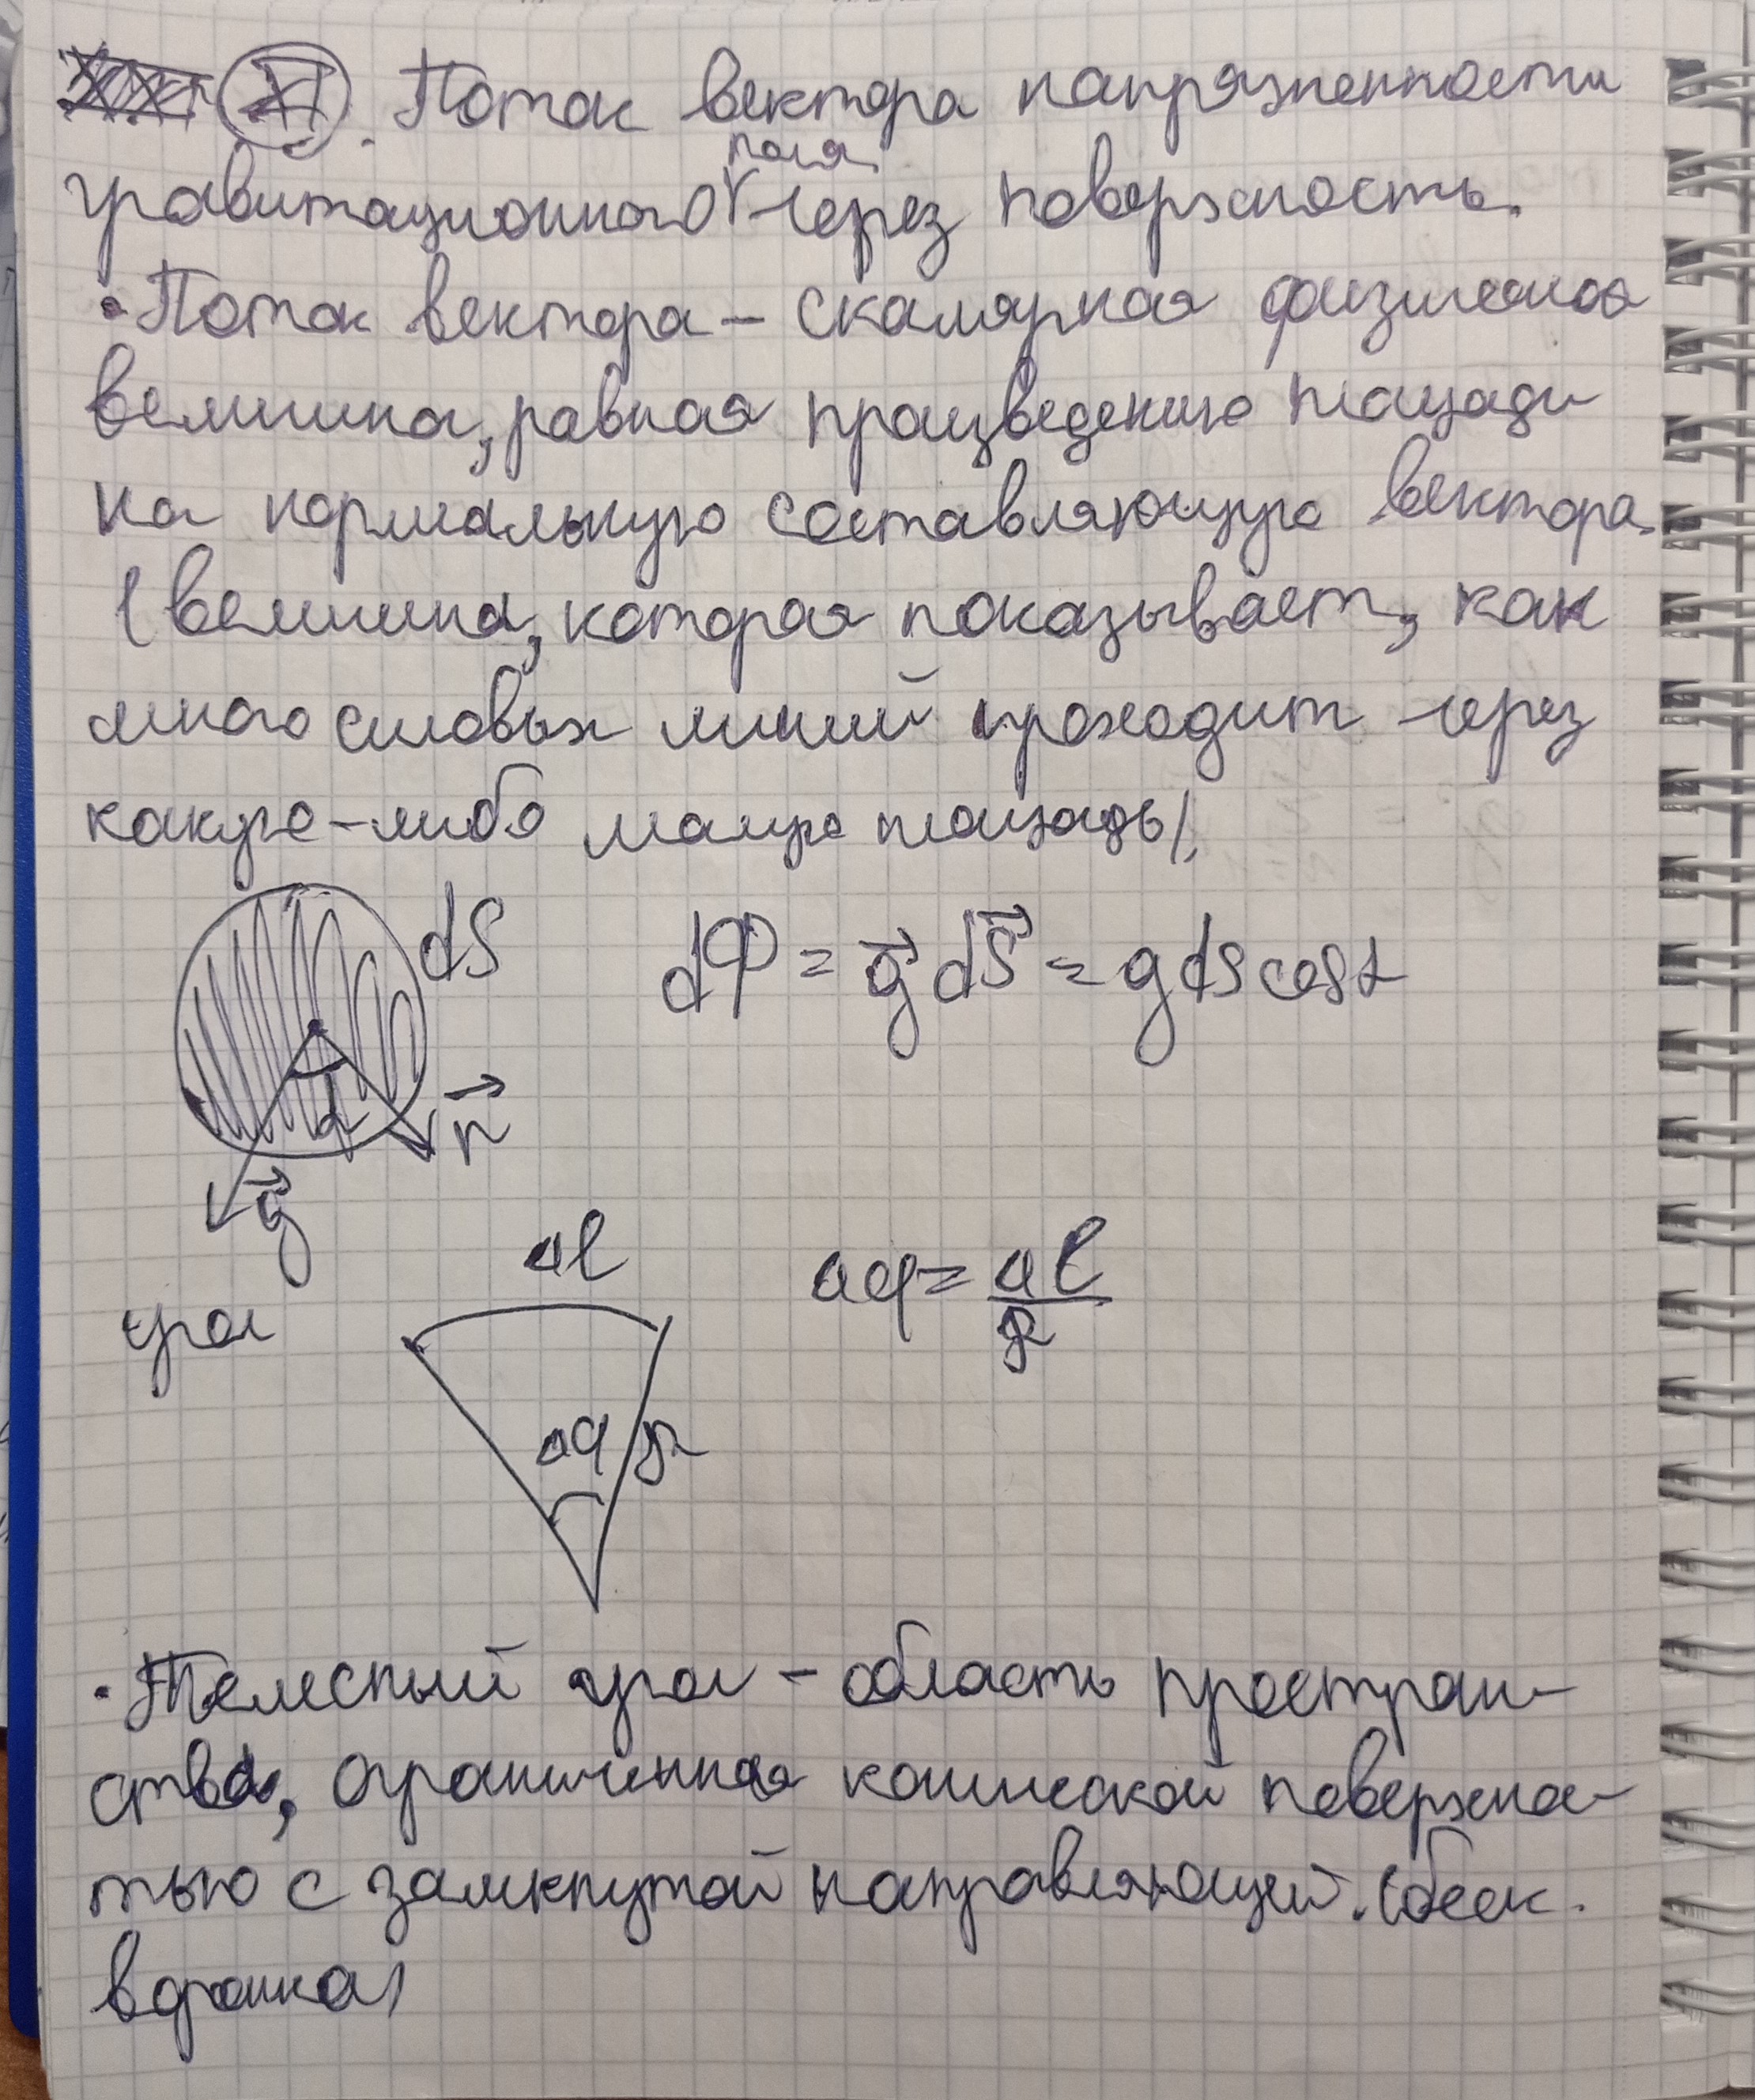 XI. Поток вектора напряженности
гравитационного поля через поверхность.
• Поток вектора – скалярная физическая
величина, равная произведению площади
на нормальную составляющую вектора.
(величина, которая показывает, как
много силовых линий проходит через
какую-либо малую площадь).
dS dФ = g⃗ dS⃗ = g dS cos α
α n⃗
g⃗
Δl Δφ = Δl / R
угол
Δφ R
• Телесный угол – область простран-
ства, ограниченная конической поверхно-
тью с замкнутой направляющей. (беск.